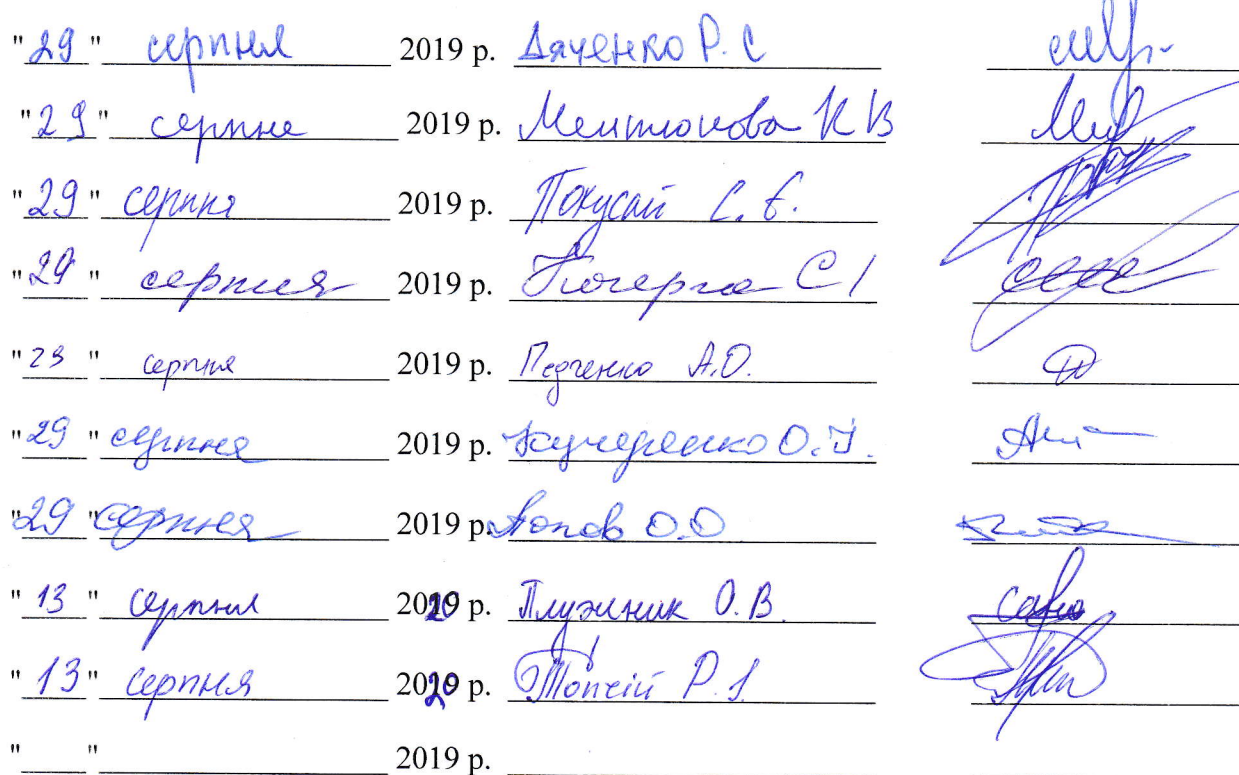 "29" серпня 2019 р. Дяченко Р. С
"29" серпня 2019 р. К В
"29" серпня 2019 р. Покусай С. Є.
"29" серпня 2019 р. Кочерга С І
"29" серпня 2019 р. Педченко А.О.
"29" серпня 2019 р. Кучеренко О.І.
"29" серпня 2019 р. Попов О.О
"13" серпня 2020 р. Плужник О.В.
"13" серпня 2020 р. Топчій Р. І
" " 2019 р.